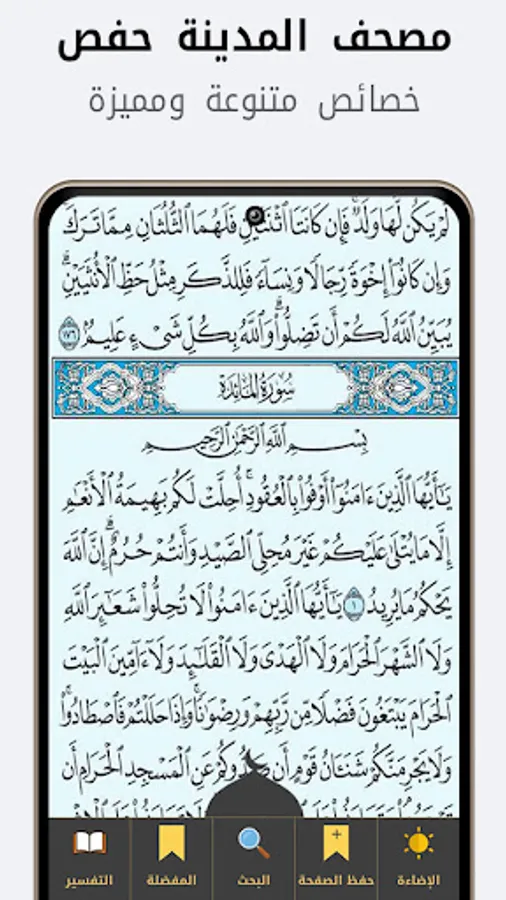 مصحف المدينة حفص
خصائص متنوعة ومميزة
لَّمْ يَكُن لَّهَا وَلَدٌ ۚ فَإِن كَانَتَا ٱثْنَتَيْنِ فَلَهُمَا ٱلثُّلُثَانِ مِمَّا تَرَكَ
وَإِن كَانُوٓا۟ إِخْوَةً رِّجَالًا وَنِسَآءً فَلِلذَّكَرِ مِثْلُ حَظِّ ٱلْأُنثَيَيْنِ ۗ
يُبَيِّنُ ٱللَّهُ لَكُمْ أَن تَضِلُّوا۟ ۗ وَٱللَّهُ بِكُلِّ شَىْءٍ عَلِيمٌۢ ١٧٦
سُورَةُ المَائِدَةِ
بِسْمِ ٱللَّهِ ٱلرَّحْمَٰنِ ٱلرَّحِيمِ
يَٰٓأَيُّهَا ٱلَّذِينَ ءَامَنُوٓا۟ أَوْفُوا۟ بِٱلْعُقُودِ ۚ أُحِلَّتْ لَكُم بَهِيمَةُ ٱلْأَنْعَٰمِ
إِلَّا مَا يُتْلَىٰ عَلَيْكُمْ غَيْرَ مُحِلِّى ٱلصَّيْدِ وَأَنتُمْ حُرُمٌ ۗ إِنَّ ٱللَّهَ
يَحْكُمُ مَا يُرِيدُ ١ يَٰٓأَيُّهَا ٱلَّذِينَ ءَامَنُوا۟ لَا تُحِلُّوا۟ شَعَٰٓئِرَ ٱللَّهِ
وَلَا ٱلشَّهْرَ ٱلْحَرَامَ وَلَا ٱلْهَدْىَ وَلَا ٱلْقَلَٰٓئِدَ وَلَآ ءَآمِّينَ ٱلْبَيْتَ
ٱلْحَرَامَ يَبْتَغُونَ فَضْلًا مِّن رَّبِّهِمْ وَرِضْوَٰنًا ۚ وَإِذَا حَلَلْتُمْ فَٱصْطَادُوا۟ ۚ
وَلَا يَجْرِمَنَّكُمْ شَنَـَٔانُ قَوْمٍ أَن صَدُّوكُمْ عَنِ ٱلْمَسْجِدِ ٱلْحَرَامِ أَن
الإضاءة
حفظ الصفحة
البحث
المفضلة
التفسير